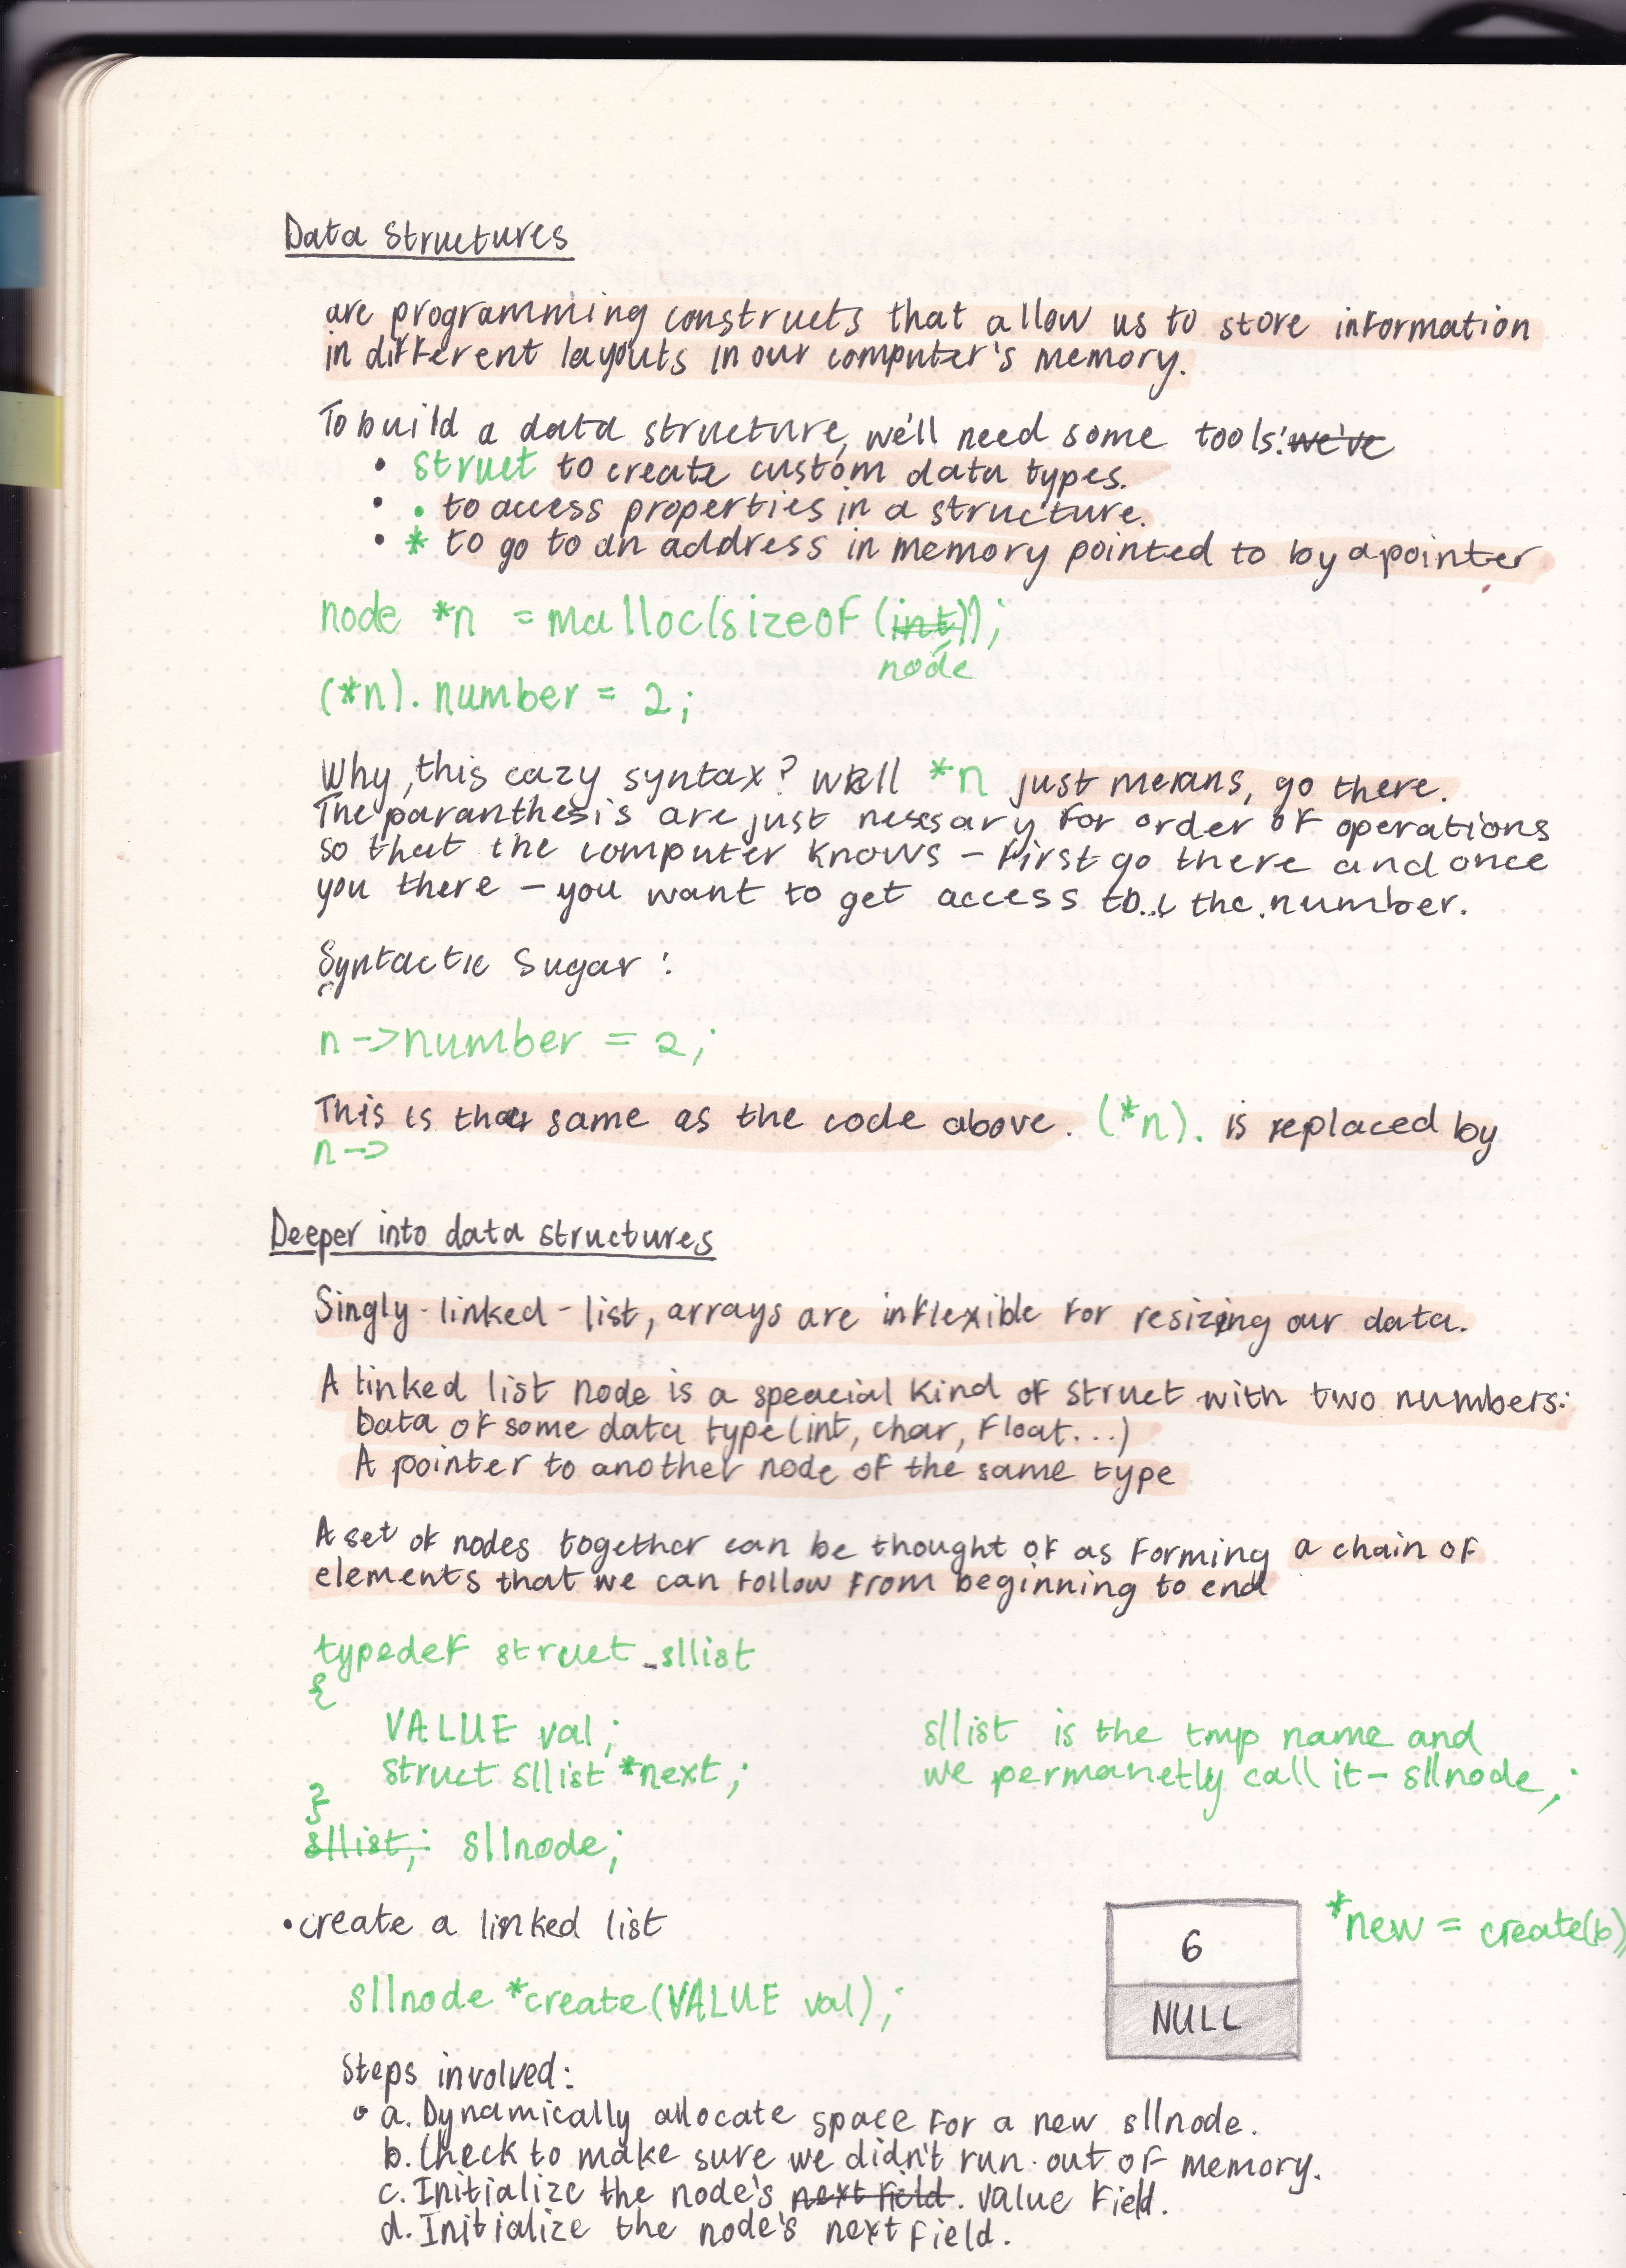 Data Structures
are programming constructs that allow us to store information
in different layouts in our computer's memory.
To build a data structure, we'll need some tools: we've
• struct to create custom data types.
• . to access properties in a structure.
• * to go to an address in memory pointed to by a pointer
node *n = malloc(sizeof(int));
node
(*n).number = 2;
Why, this cazy syntax? well *n just means, go there.
The paranthesis are just nessary for order of operations
so that the computer knows – first go there and once
you there – you want to get access to the number.
Syntactic Sugar:
n->number = 2;
This is the same as the code above. (*n). is replaced by
n->
Deeper into data structures
Singly-linked-list, arrays are inflexible for resizing our data.
A linked list node is a speacial kind of struct with two numbers:
Data of some data type (int, char, float...)
A pointer to another node of the same type
A set of nodes together can be thought of as forming a chain of
elements that we can follow from beginning to end
typedef struct _sllist
{
VALUE val; sllist is the tmp name and
struct sllist *next; we permanetly call it – sllnode;
}
sllist; sllnode;
• create a linked list
6 *new = create(6)
sllnode *create(VALUE val);
NULL
Steps involved:
• a. Dynamically allocate space for a new sllnode.
b. Check to make sure we didn't run out of memory.
c. Initialize the node's next field. value field.
d. Initialize the node's next field.